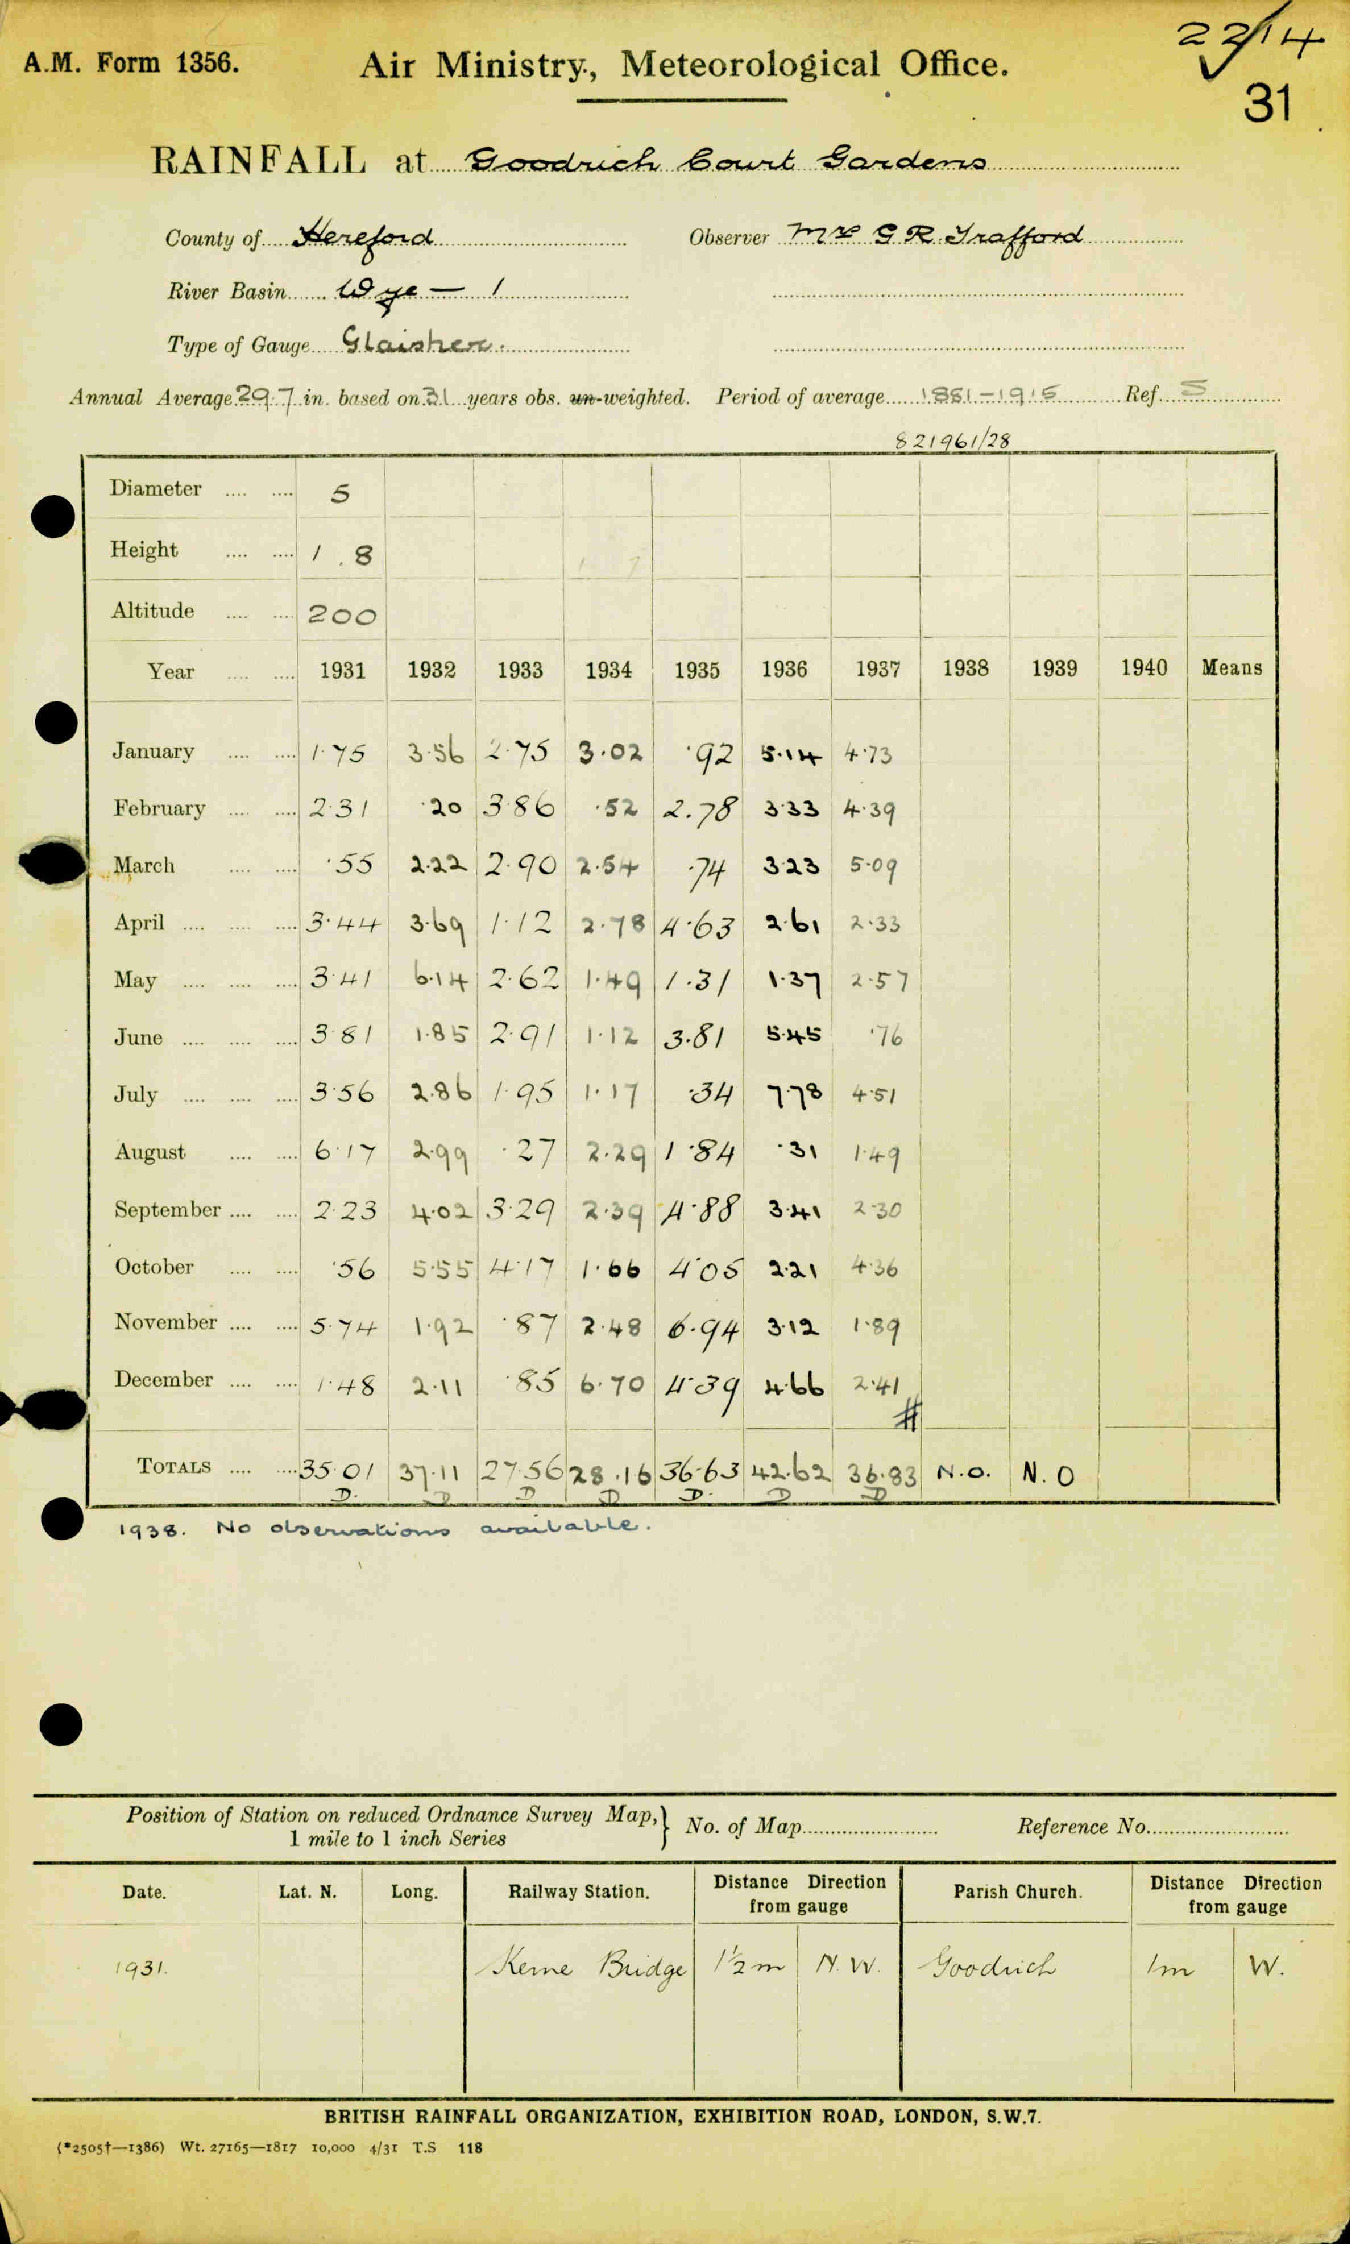 A.M. Form 1356. Air Ministry, Meteorological Office. 22/14
31
RAINFALL at Goodrich Court Gardens
County of Hereford Observer Mrs G R Trafford
River Basin Wye — 1
Type of Gauge Glaisher.
Annual Average 29.7 in. based on 31 years obs. un-weighted. Period of average 1881-1915 Ref. S
821961/28
Diameter 5
Height 1.8
Altitude 200
Year 1931 1932 1933 1934 1935 1936 1937 1938 1939 1940 Means
January 1.75 3.56 2.75 3.02 .92 5.14 4.73
February 2.31 .20 3.86 .52 2.78 3.33 4.39
March .55 2.22 2.90 2.54 .74 3.23 5.09
April 3.44 3.69 1.12 2.78 4.63 2.61 2.33
May 3.41 6.14 2.62 1.49 1.31 1.37 2.57
June 3.81 1.85 2.91 1.12 3.81 5.45 .76
July 3.56 2.86 1.95 1.17 .34 7.78 4.51
August 6.17 2.99 .27 2.29 1.84 .31 1.49
September 2.23 4.02 3.29 2.39 4.88 3.41 2.30
October .56 5.55 4.17 1.66 4.05 2.21 4.36
November 5.74 1.92 .87 2.48 6.94 3.12 1.89
December 1.48 2.11 .85 6.70 4.39 4.66 2.41
#
TOTALS 35.01 37.11 27.56 28.16 36.63 42.62 36.83 N.O. N.O
D. D D D D. D D
1938. No observations available.
Position of Station on reduced Ordnance Survey Map, } No. of Map Reference No.
1 mile to 1 inch Series
Date. Lat. N. Long. Railway Station. Distance from gauge Direction Parish Church. Distance from gauge Direction
1931. Kerne Bridge 1½ m N.W. Goodrich 1m W.
BRITISH RAINFALL ORGANIZATION, EXHIBITION ROAD, LONDON, S.W.7.
(*2505†—1386) Wt. 27165—1817 10,000 4/31 T.S 118